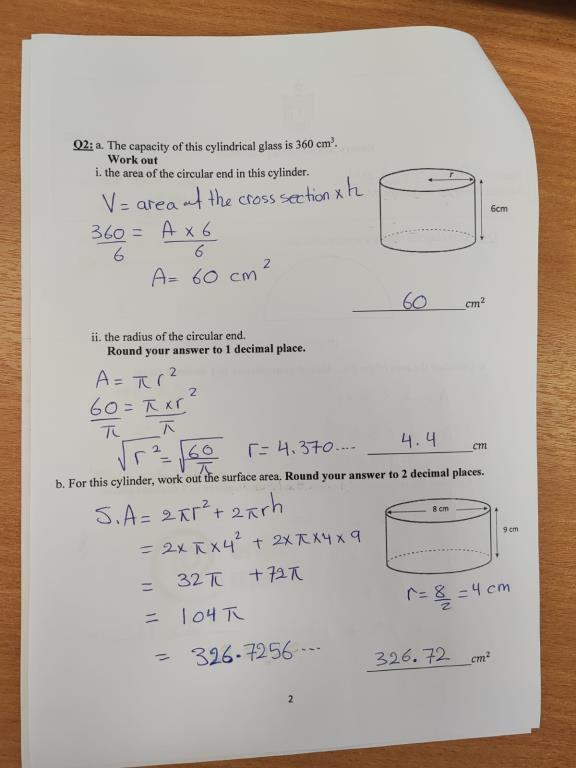 Q2: a. The capacity of this cylindrical glass is 360 cm³.
Work out
i. the area of the circular end in this cylinder.
V = area of the cross section x h
r
6cm
360/6 = A x 6/6
A = 60 cm²
60 cm²
ii. the radius of the circular end.
Round your answer to 1 decimal place.
A = πr²
60/π = π x r²/π
√r² = √60/π r = 4.370.... 4.4 cm
b. For this cylinder, work out the surface area. Round your answer to 2 decimal places.
S.A = 2πr² + 2πrh
8 cm
9 cm
= 2 x π x 4² + 2 x π x 4 x 9
= 32π + 72π
r = 8/2 = 4 cm
= 104π
= 326.7256...
326.72 cm²
2